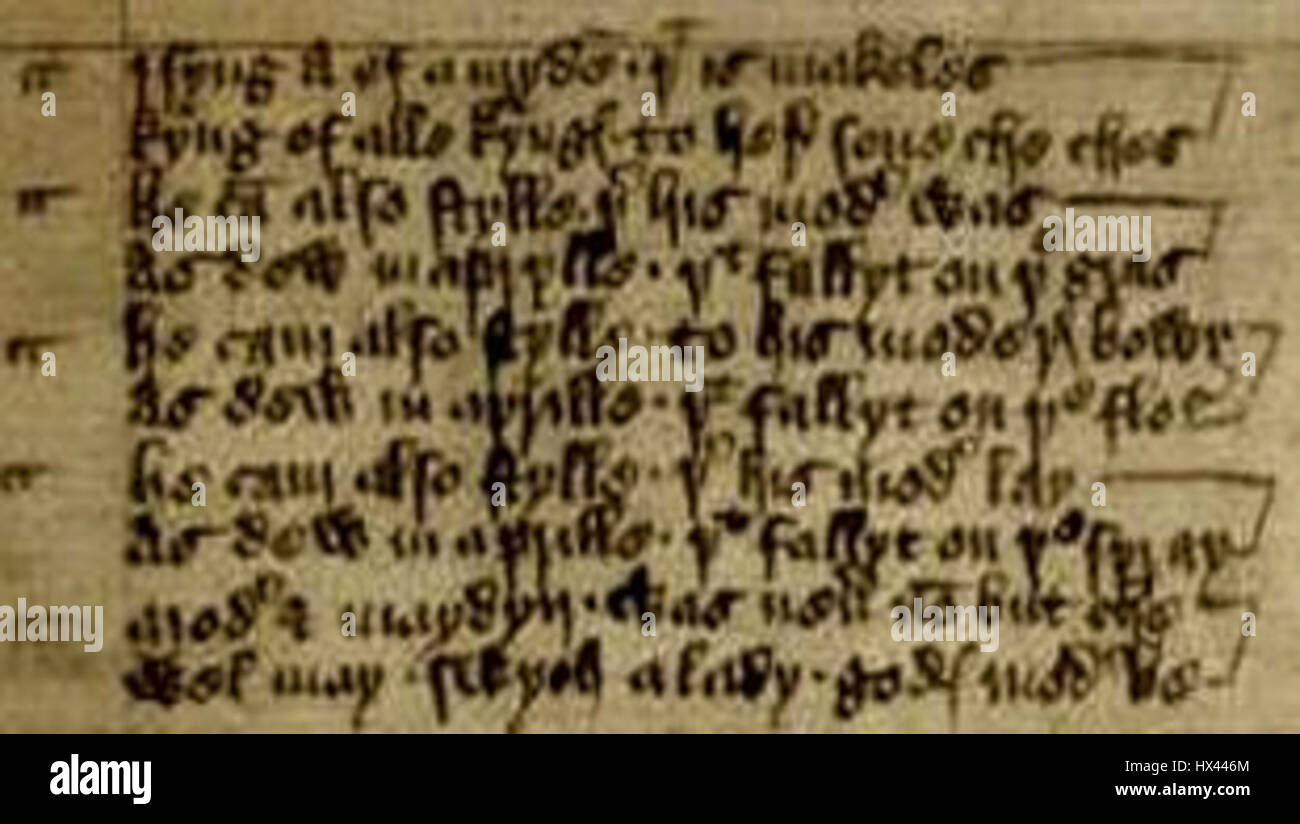 I syng a of a myden · þ is makeles
kyng of alle kynges to here sone che ches
he cā also stylle · þ his modʳ was
as dew in aprylle · þᵗ fallyt on þ gras
he cam also stylle · to his modeʳ bowr
as dew in aprille · þᵗ fallyt on þᵉ flour
he cam also stylle · þʳ his modʳ lay
as dew in aprille · þᵗ fallyt on þᵉ spray
modʳ & maydyn · was non but che
wel may swych a lady · godes modʳ be
alamy
alamy
alamy
alamy
alamy
alamy stock photo
HX446M
www.alamy.com